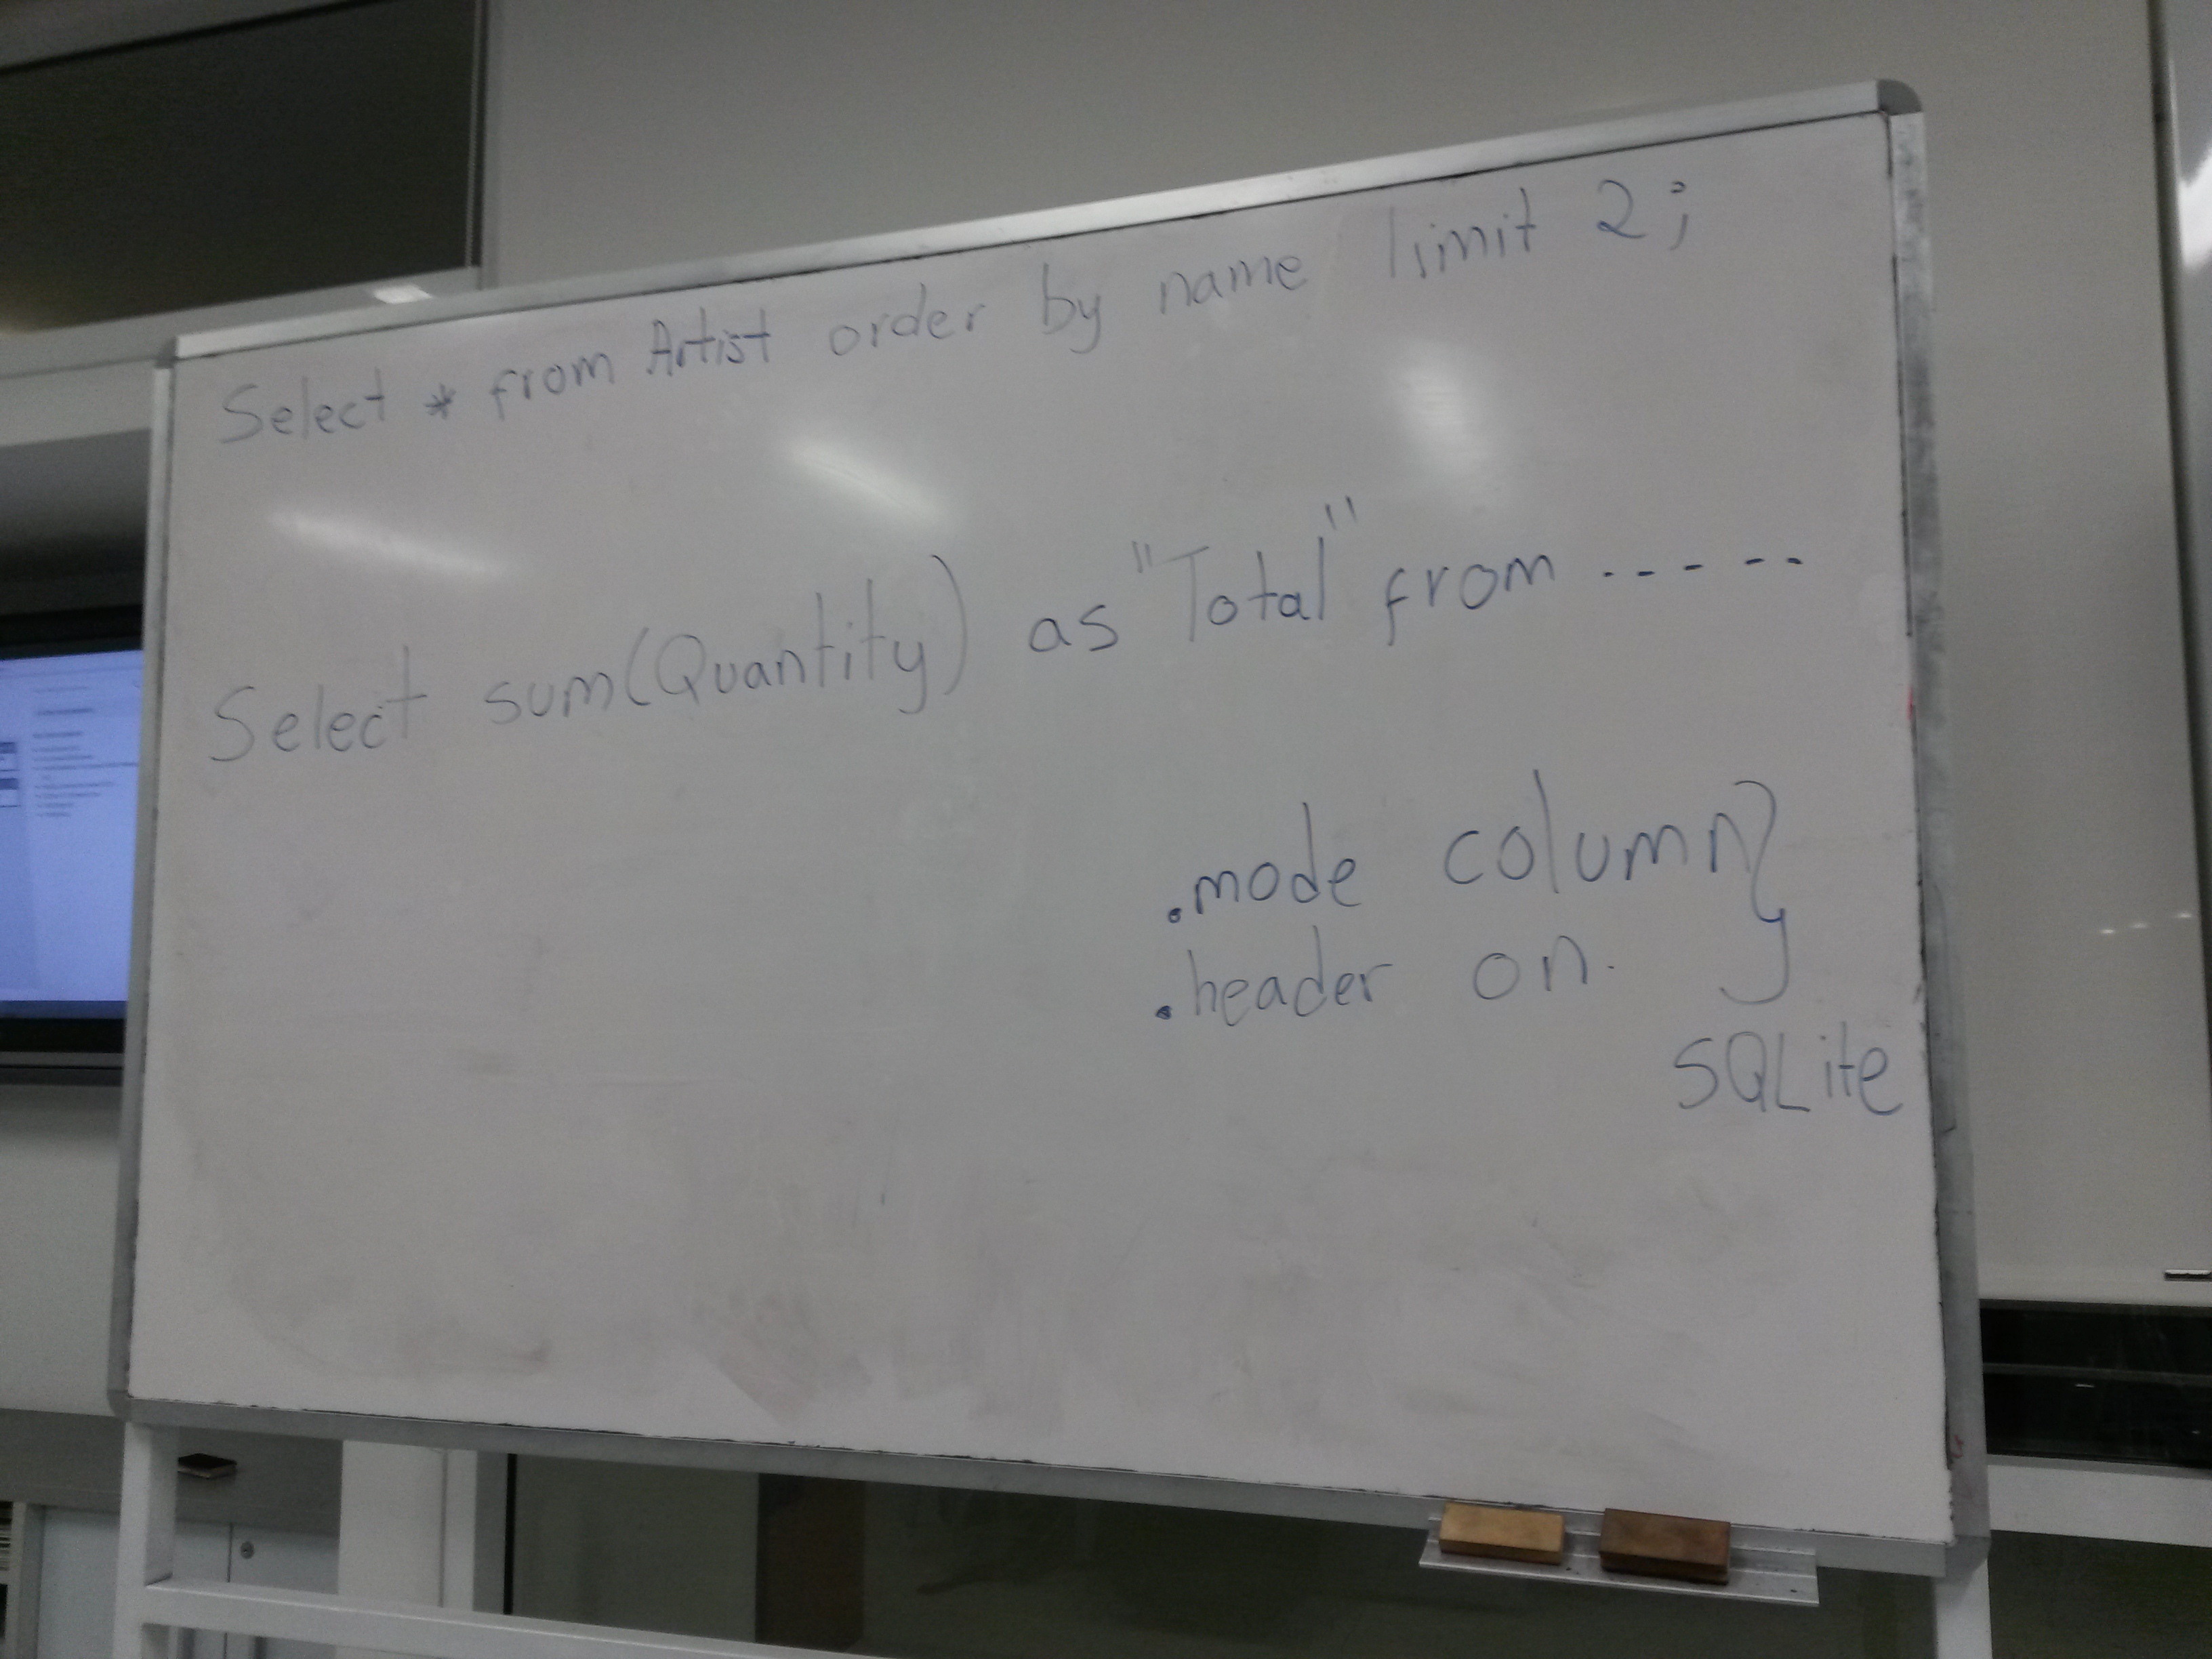 Select * from Artist order by name limit 2;
Select sum(Quantity) as "Total" from .....
.mode column }
.header on.
SQLite